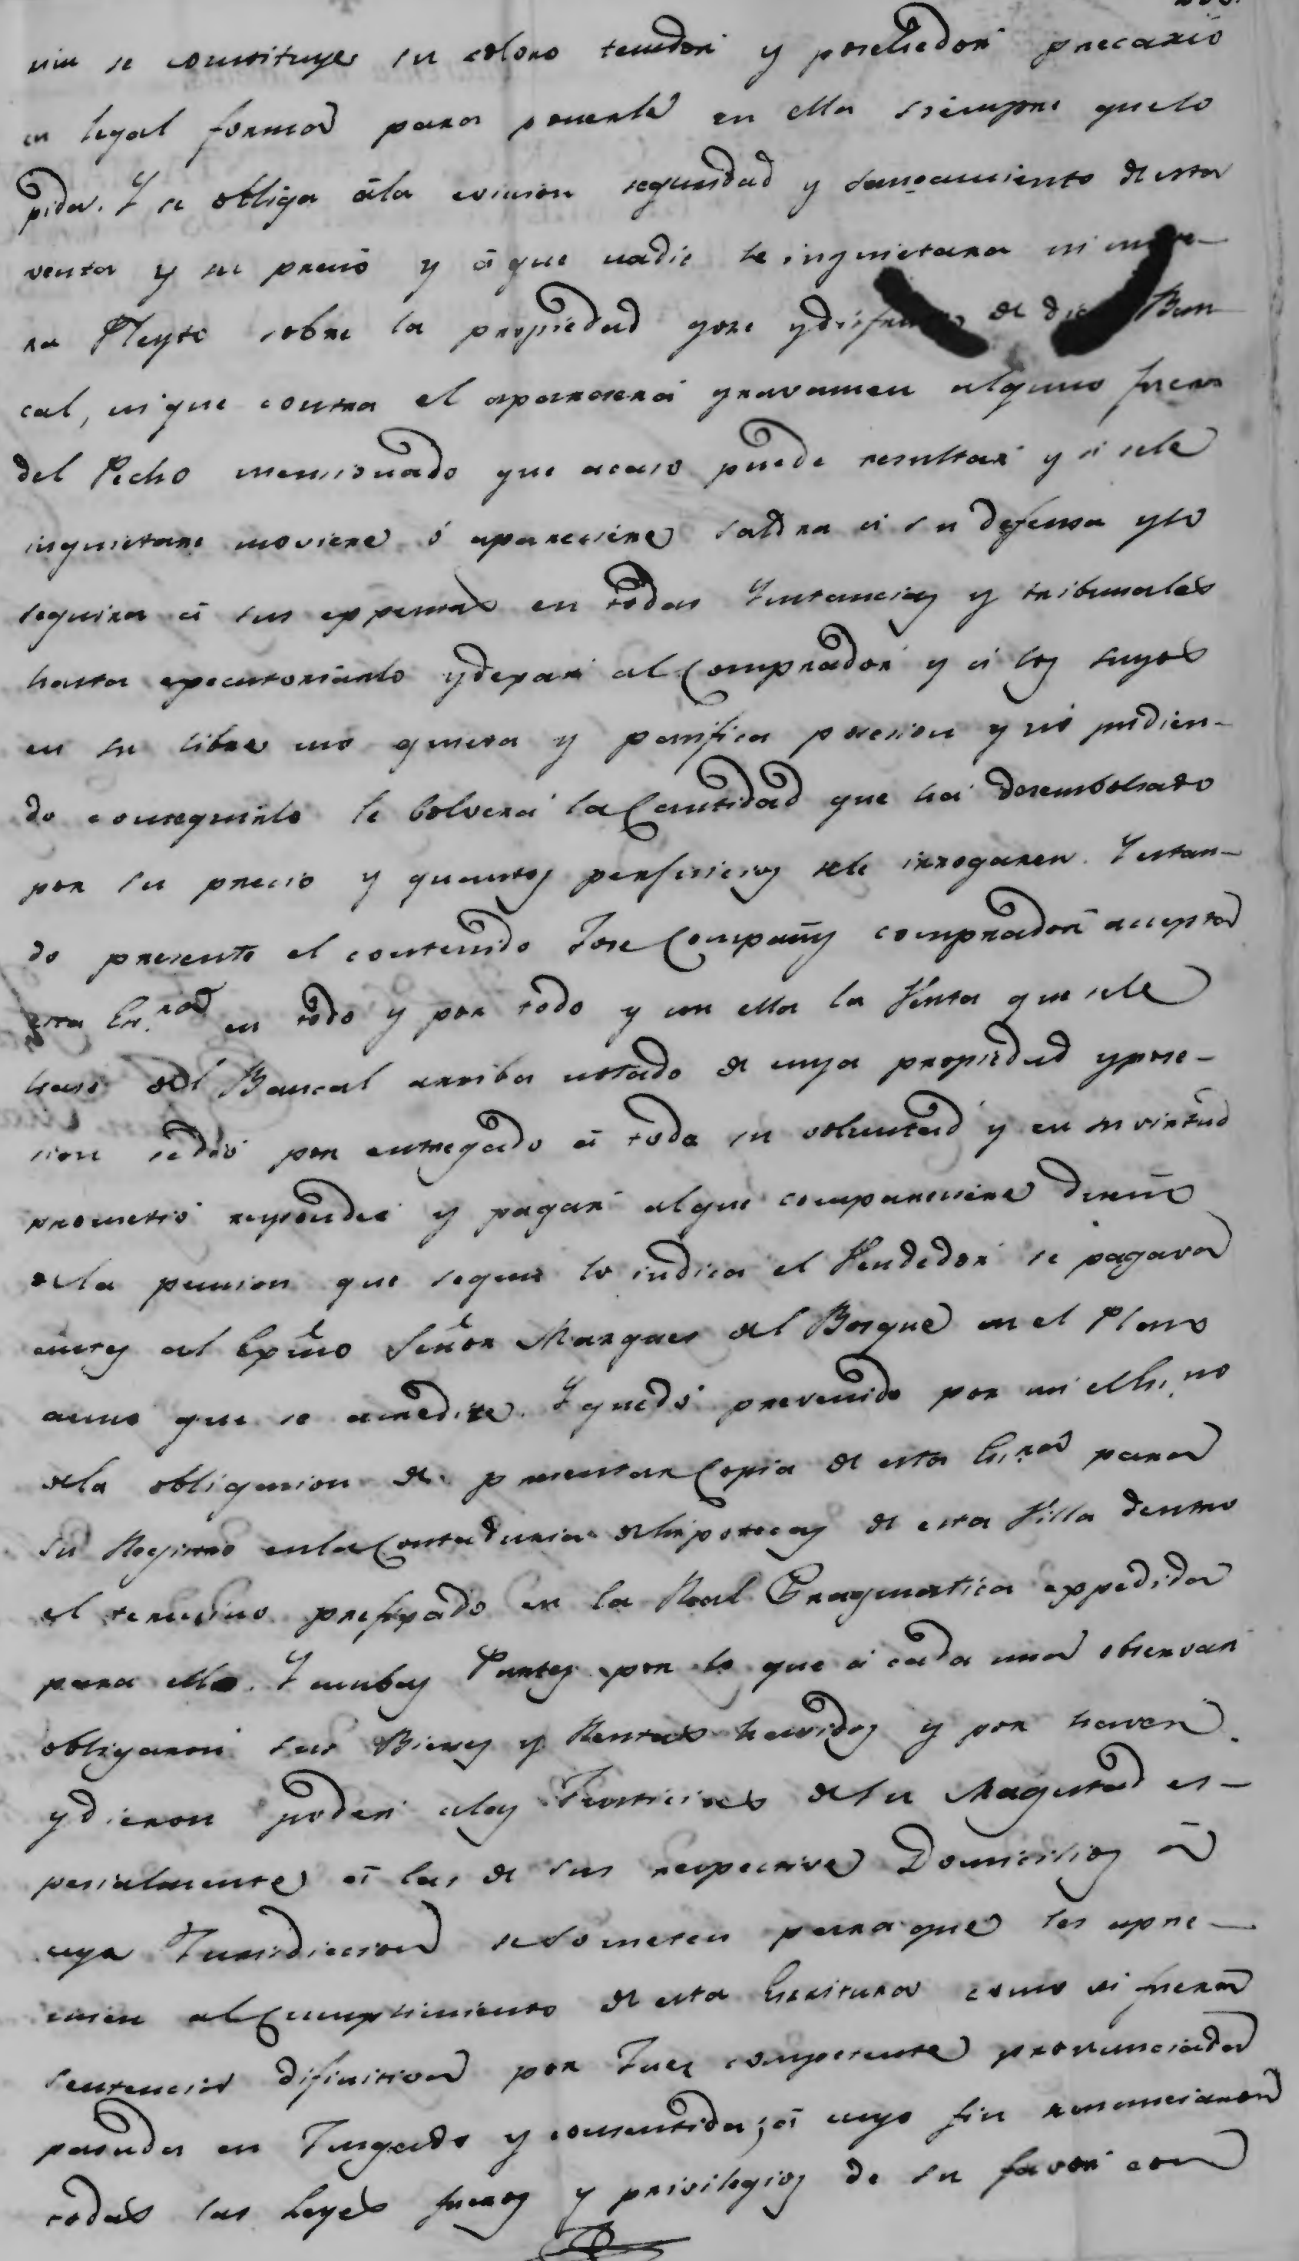 rin se constituye su colono tenedor y posehedor precario
en legal forma para ponerle en ella siempre que lo
pida. Y se obliga â la eviccion seguridad y saneamiento de esta
venta y su precio y â que nadie le inquietara ni move-
ra Pleyto sobre la propiedad gose y disfrute de dicho Ban
cal, ni que contra el aparecerá gravamen alguno fuera
del Pecho mensionado que acaso puede resultar y si sele
inquietare moviere ó apareciere saldra á su defensa y lo
seguira á sus expensas en todas Ynstancias y tribunales
hasta executoriarlo y dexar al Comprador y á los suyos
en su libre uso quieta y pasifica posesion y nó pudien-
do conseguirlo le bolverá la Cantidad que ha desembolsado
por su precio y quantos perjuicios sele irrogaren. Y estan-
do presente el contenido Jose Compañy comprador accepta
esta Es.ra en todo y por todo y con ella la Venta que sele
hase del Bancal arriba notado de cuya propiedad y pose-
sion se dió por entregado á toda su voluntad y en su virtud
prometió responder y pagar al que compareciere dueño
de la pension que segun lo indica el Vendedor se pagava
antes al Exmo Señor Marques del Bosque en el Plano
acaso que se acredite. Y quedó prevenido por mi el Es.no
de la obligacion de presentar Copia de esta Es.ra para
su Registro en la Contaduria de hipotecas de esta Villa dentro
el termino prefixado en la Real Pragmatica expedida
para ello. Y ambas Partes por lo que á cada una observar
obligaron sus Bienes y Rentas havidos y por haver.
y dieron poder alas Justicias de su Magestad es-
pesialmente á las de sus respective Domicilios á
cuya Jurisdiccion se someten para que les apre-
mien al Cumplimiento de esta Escritura como si fuera
sentencia difinitiva por Juez competente pronunciada
pasada en Jusgado y consentida; á cuyo fin renunciaron
todas las Leyes fueros y privilegios de su favor con